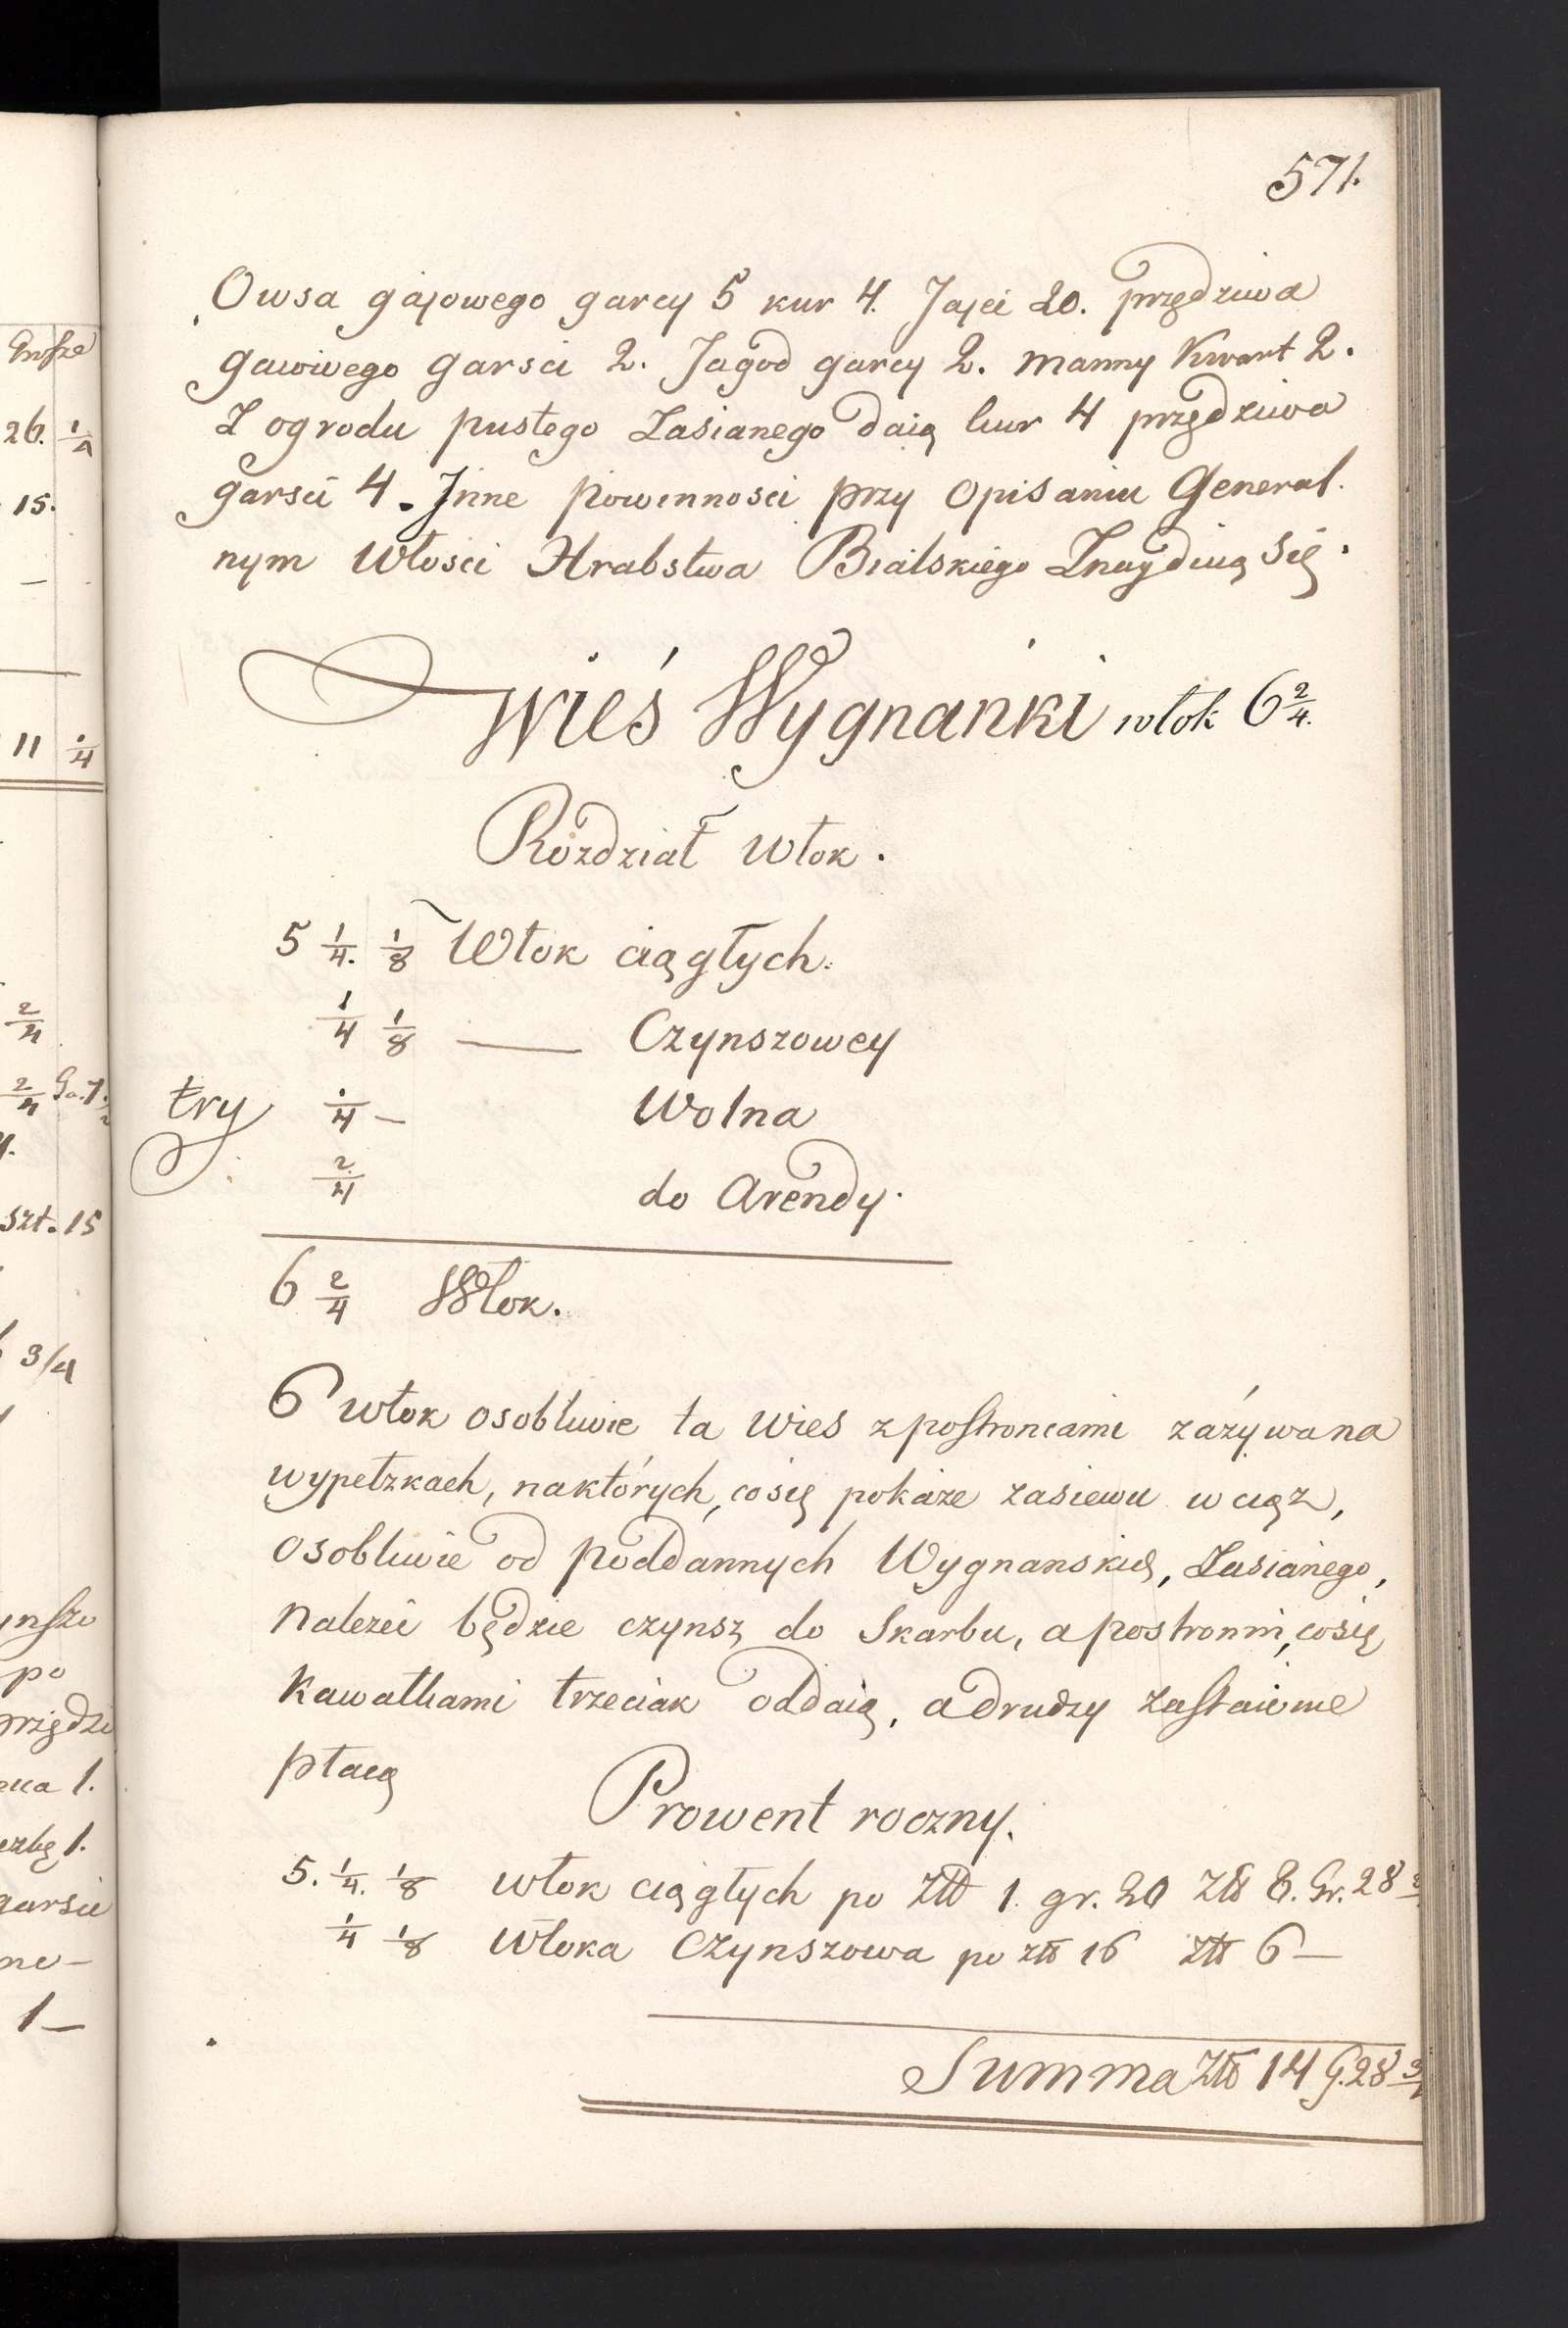 571.
Owsa gajowego garcy 5 kur 4. Jajci 20. przędziwa
gawiwego garsci 2. Jagod garcy 2. manny Kwart 2.
Z ogrodu pustego Zasianego daią kur 4 przędziwa
garsci 4. Jnne powinnosci przy Opisaniu General.
nym Włosci Hrabstwa Bialskiego Znaydują się.
Wieś Wygnanki włok 6 2/4.
Rozdział Włok.
5 1/4. 1/8 Włok ciągłych.
1/4 1/8 — Czynszowey
try ./4 — Wolna
2/4 do Arendy.
6 2/4 Włok.
6 włok osobliwie ta Wies z postroncami zażywa na
wypełzkach, na których, co się pokaże zasiewu w ciąż,
osobliwie od poddannych Wygnanskich, Zasianego,
Nalezeć będzie czynsz do Skarbu, a postronni, co się
Kawałkami trzeciak oddaią, a drudzy
płacą
Prowent roczny.
5. 1/4. 1/8 włok ciągłych po Złł 1. gr. 20 Złł 8. Gr. 28
1/4 1/8 Włoka Czynszowa po złł 16 złł 6 —
Summa Złł 14 G. 28 3/4
Grosze
26. 1/4
15.
—
11 ./4
2/4
2/4
szt. 15
3/4
po
1.
1.
garsci
1 —